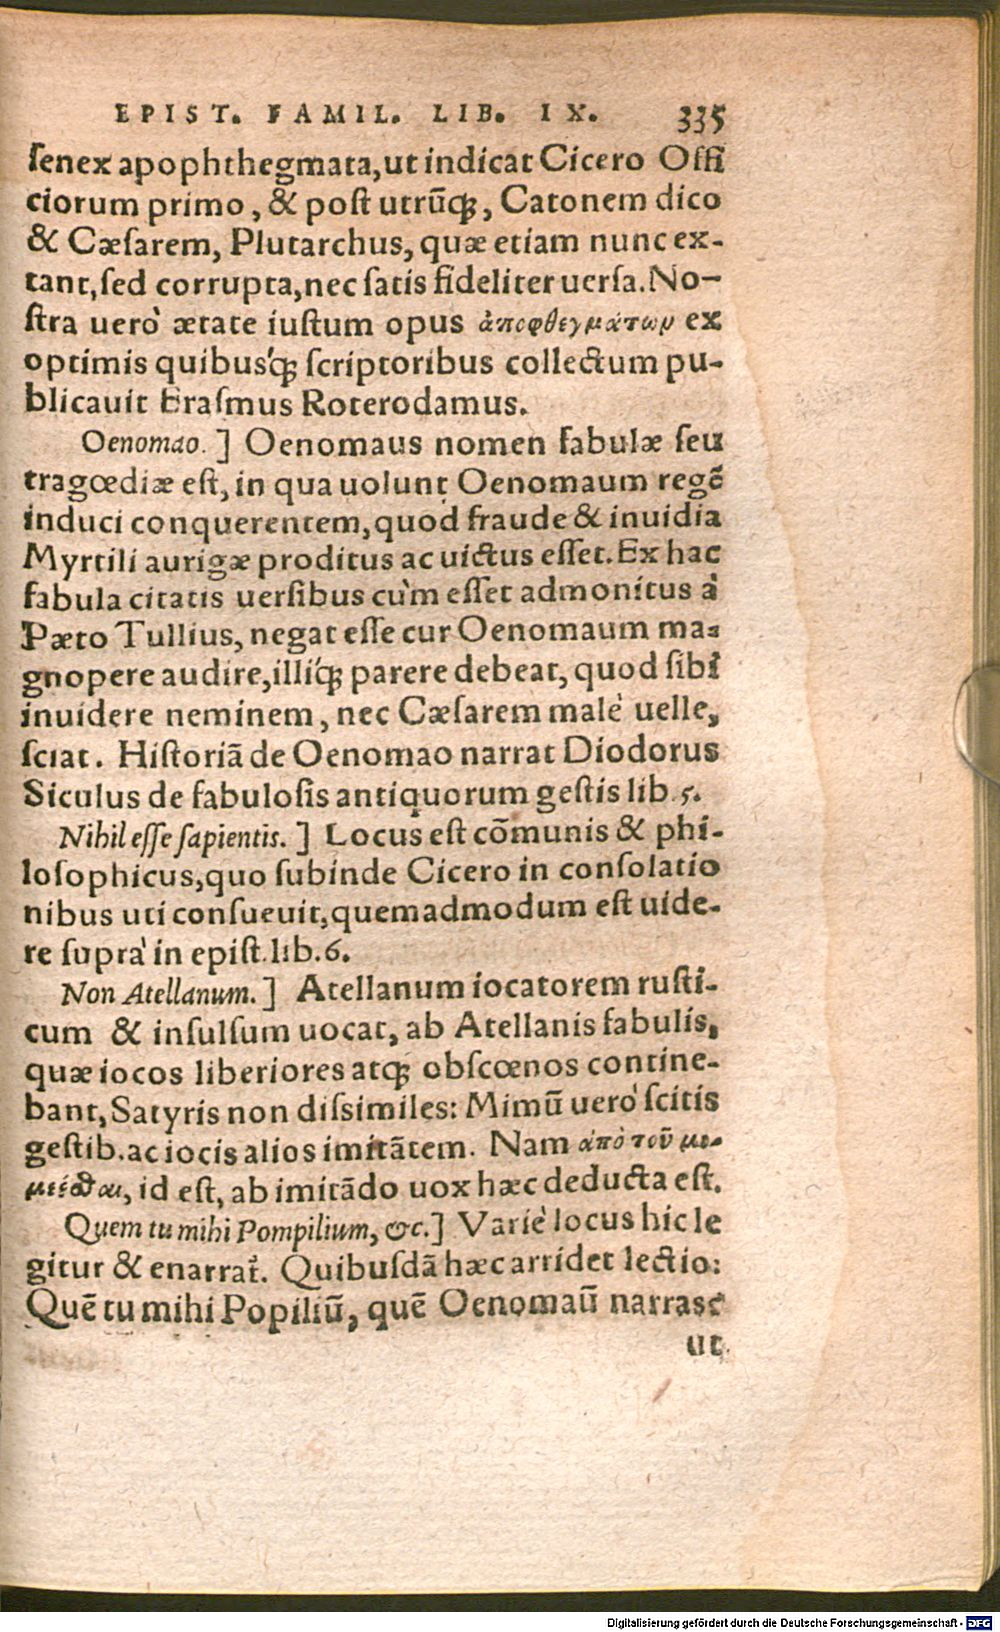 EPIST. FAMIL. LIB. IX. 335
ſenex apophthegmata, ut indicat Cicero Offi
ciorum primo, & poſt utrũq;, Catonem dico
& Cæſarem, Plutarchus, quæ etiam nunc ex-
tant, ſed corrupta, nec ſatis fideliter uerſa. No-
ſtra uerò ætate iuſtum opus ἀποφθεγμάτων ex
optimis quibusq́; ſcriptoribus collectum pu-
blicauit Eraſmus Roterodamus.
Oenomao.] Oenomaus nomen fabulæ ſeu
tragœdiæ eſt, in qua uolunt Oenomaum regẽ
induci conquerentem, quòd fraude & inuidia
Myrtili aurigæ proditus ac uictus eſſet. Ex hac
fabula citatis uerſibus cùm eſſet admonitus à
Pæto Tullius, negat eſſe cur Oenomaum ma-
gnopere audire, illíq; parere debeat, quod ſibi
inuidere neminem, nec Cæſarem malè uelle,
ſciat. Hiſtoriã de Oenomao narrat Diodorus
Siculus de fabuloſis antiquorum geſtis lib. 5.
Nihil eſſe ſapientis.] Locus eſt cõmunis & phi-
loſophicus, quo ſubinde Cicero in conſolatio
nibus uti conſueuit, quemadmodum eſt uide-
re ſuprà in epiſt. lib. 6.
Non Atellanum.] Atellanum iocatorem ruſti-
cum & inſulſum uocat, ab Atellanis fabulis,
quæ iocos liberiores atq; obſcœnos contine-
bant, Satyris non diſsimiles: Mimũ uerò ſcitis
geſtib. ac iocis alios imitãtem. Nam ἀπὸ τοῦ μι-
μεῖσθαι, id eſt, ab imitãdo uox hæc deducta eſt.
Quem tu mihi Pompilium, &c.] Variè locus hic le
gitur & enarrat̃. Quibuſdã hæc arridet lectio:
Quẽ tu mihi Popiliũ, quẽ Oenomaũ narras?
ut
Digitalisierung gefördert durch die Deutsche Forschungsgemeinschaft - DFG